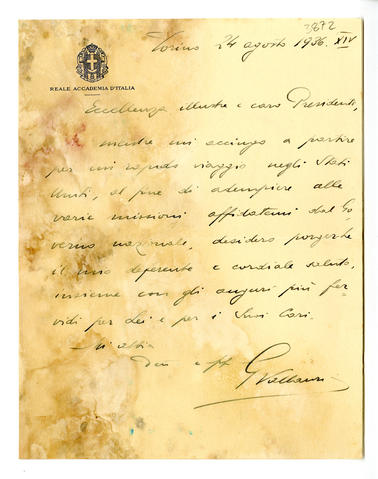 3872
Torino 24 agosto 1936. XIV
REALE ACCADEMIA D'ITALIA
Eccellenza illustre e caro Presidente,
mentre mi accingo a partire
per un rapido viaggio negli Stati
Uniti, al fine di adempiere alle
varie missioni affidatemi dal Go
verno nazionale, desidero porgerle
il mio deferente e cordiale saluto,
insieme con gli auguri più fer
vidi per Lei e per i Suoi Cari.
Mi abbia
aff
G Vallauri